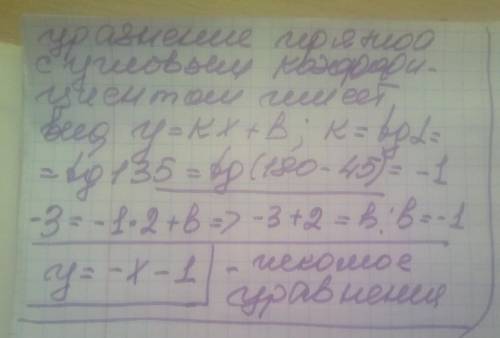 уравнение прямой
с угловым коэффи-
циентом имеет
вид y=kx+b; k=tgα=
=tg135=tg(180-45)=-1
-3=-1·2+b=>-3+2=b; b=-1
y=-x-1 - искомое
уравнение